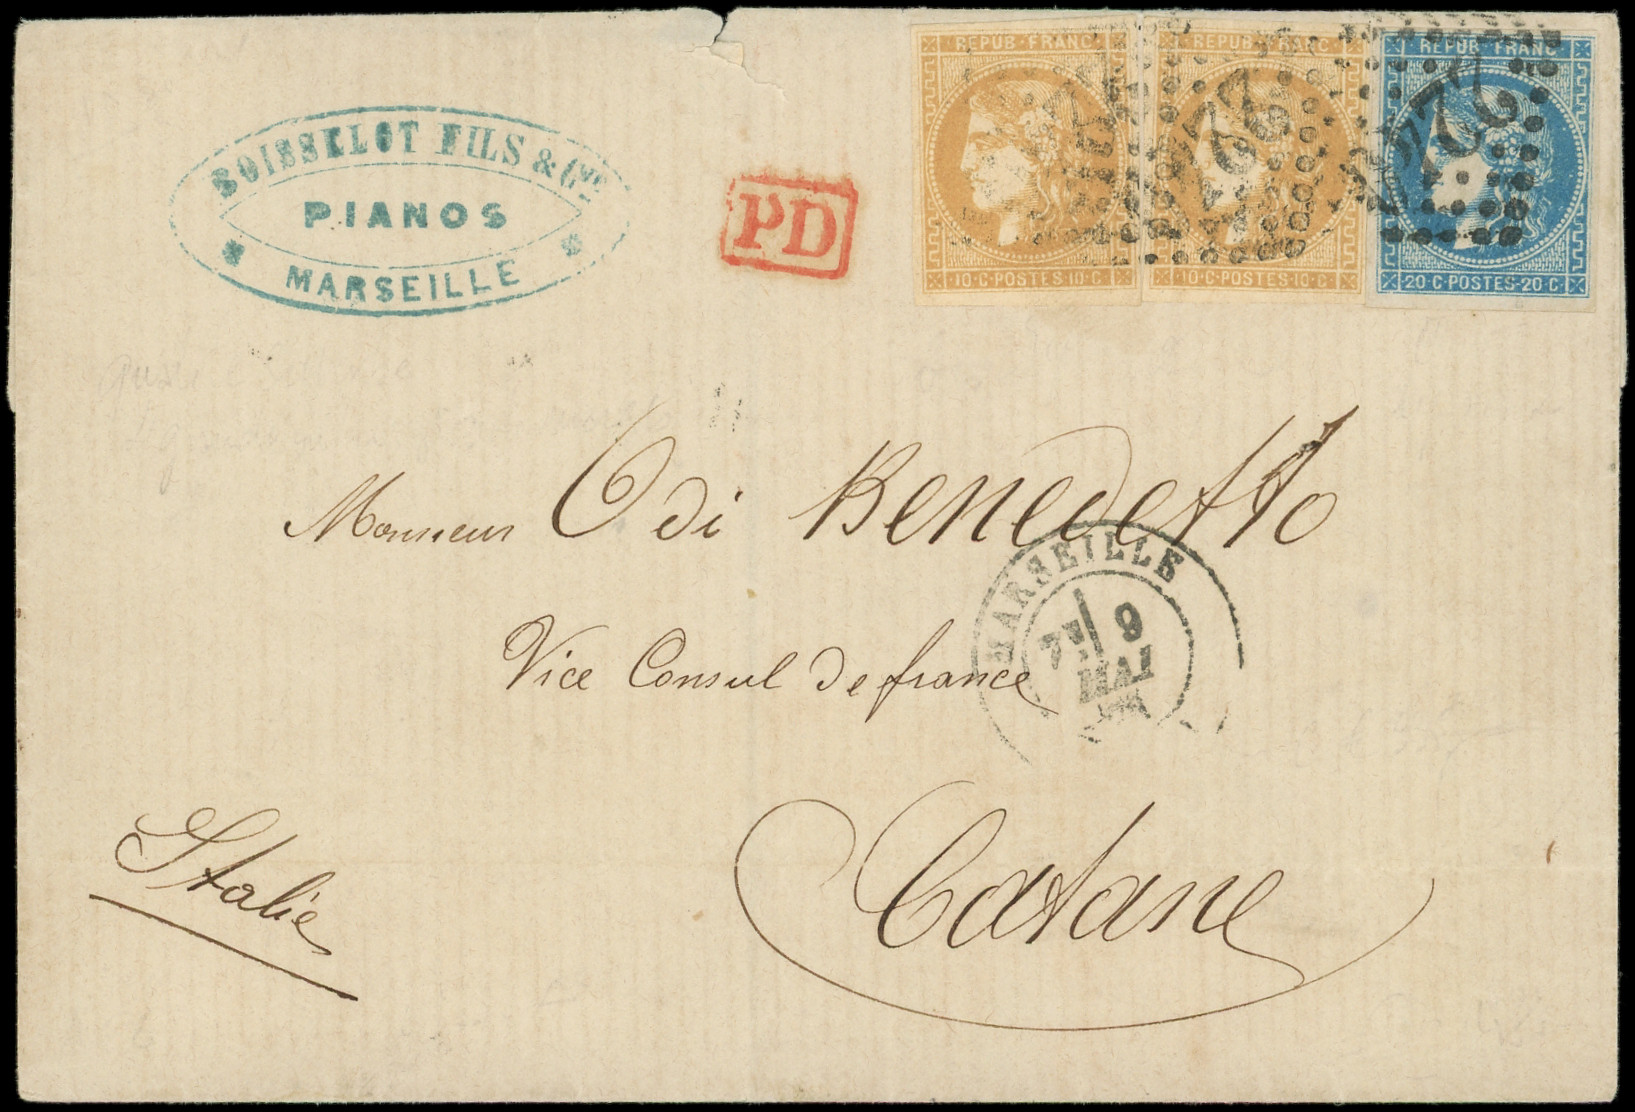 BOISSELOT FILS & Cie
PIANOS
MARSEILLE
PD
REPUB·FRANC
10·C·POSTES·10·C
REPUB·FRANC
10·C·POSTES·10·C
REPUB·FRANC
20·C·POSTES·20·C
2240
Monsieur O di Benedetto
MARSEILLE
7E 9
MAI
Vice Consul de france
Italie
Catane